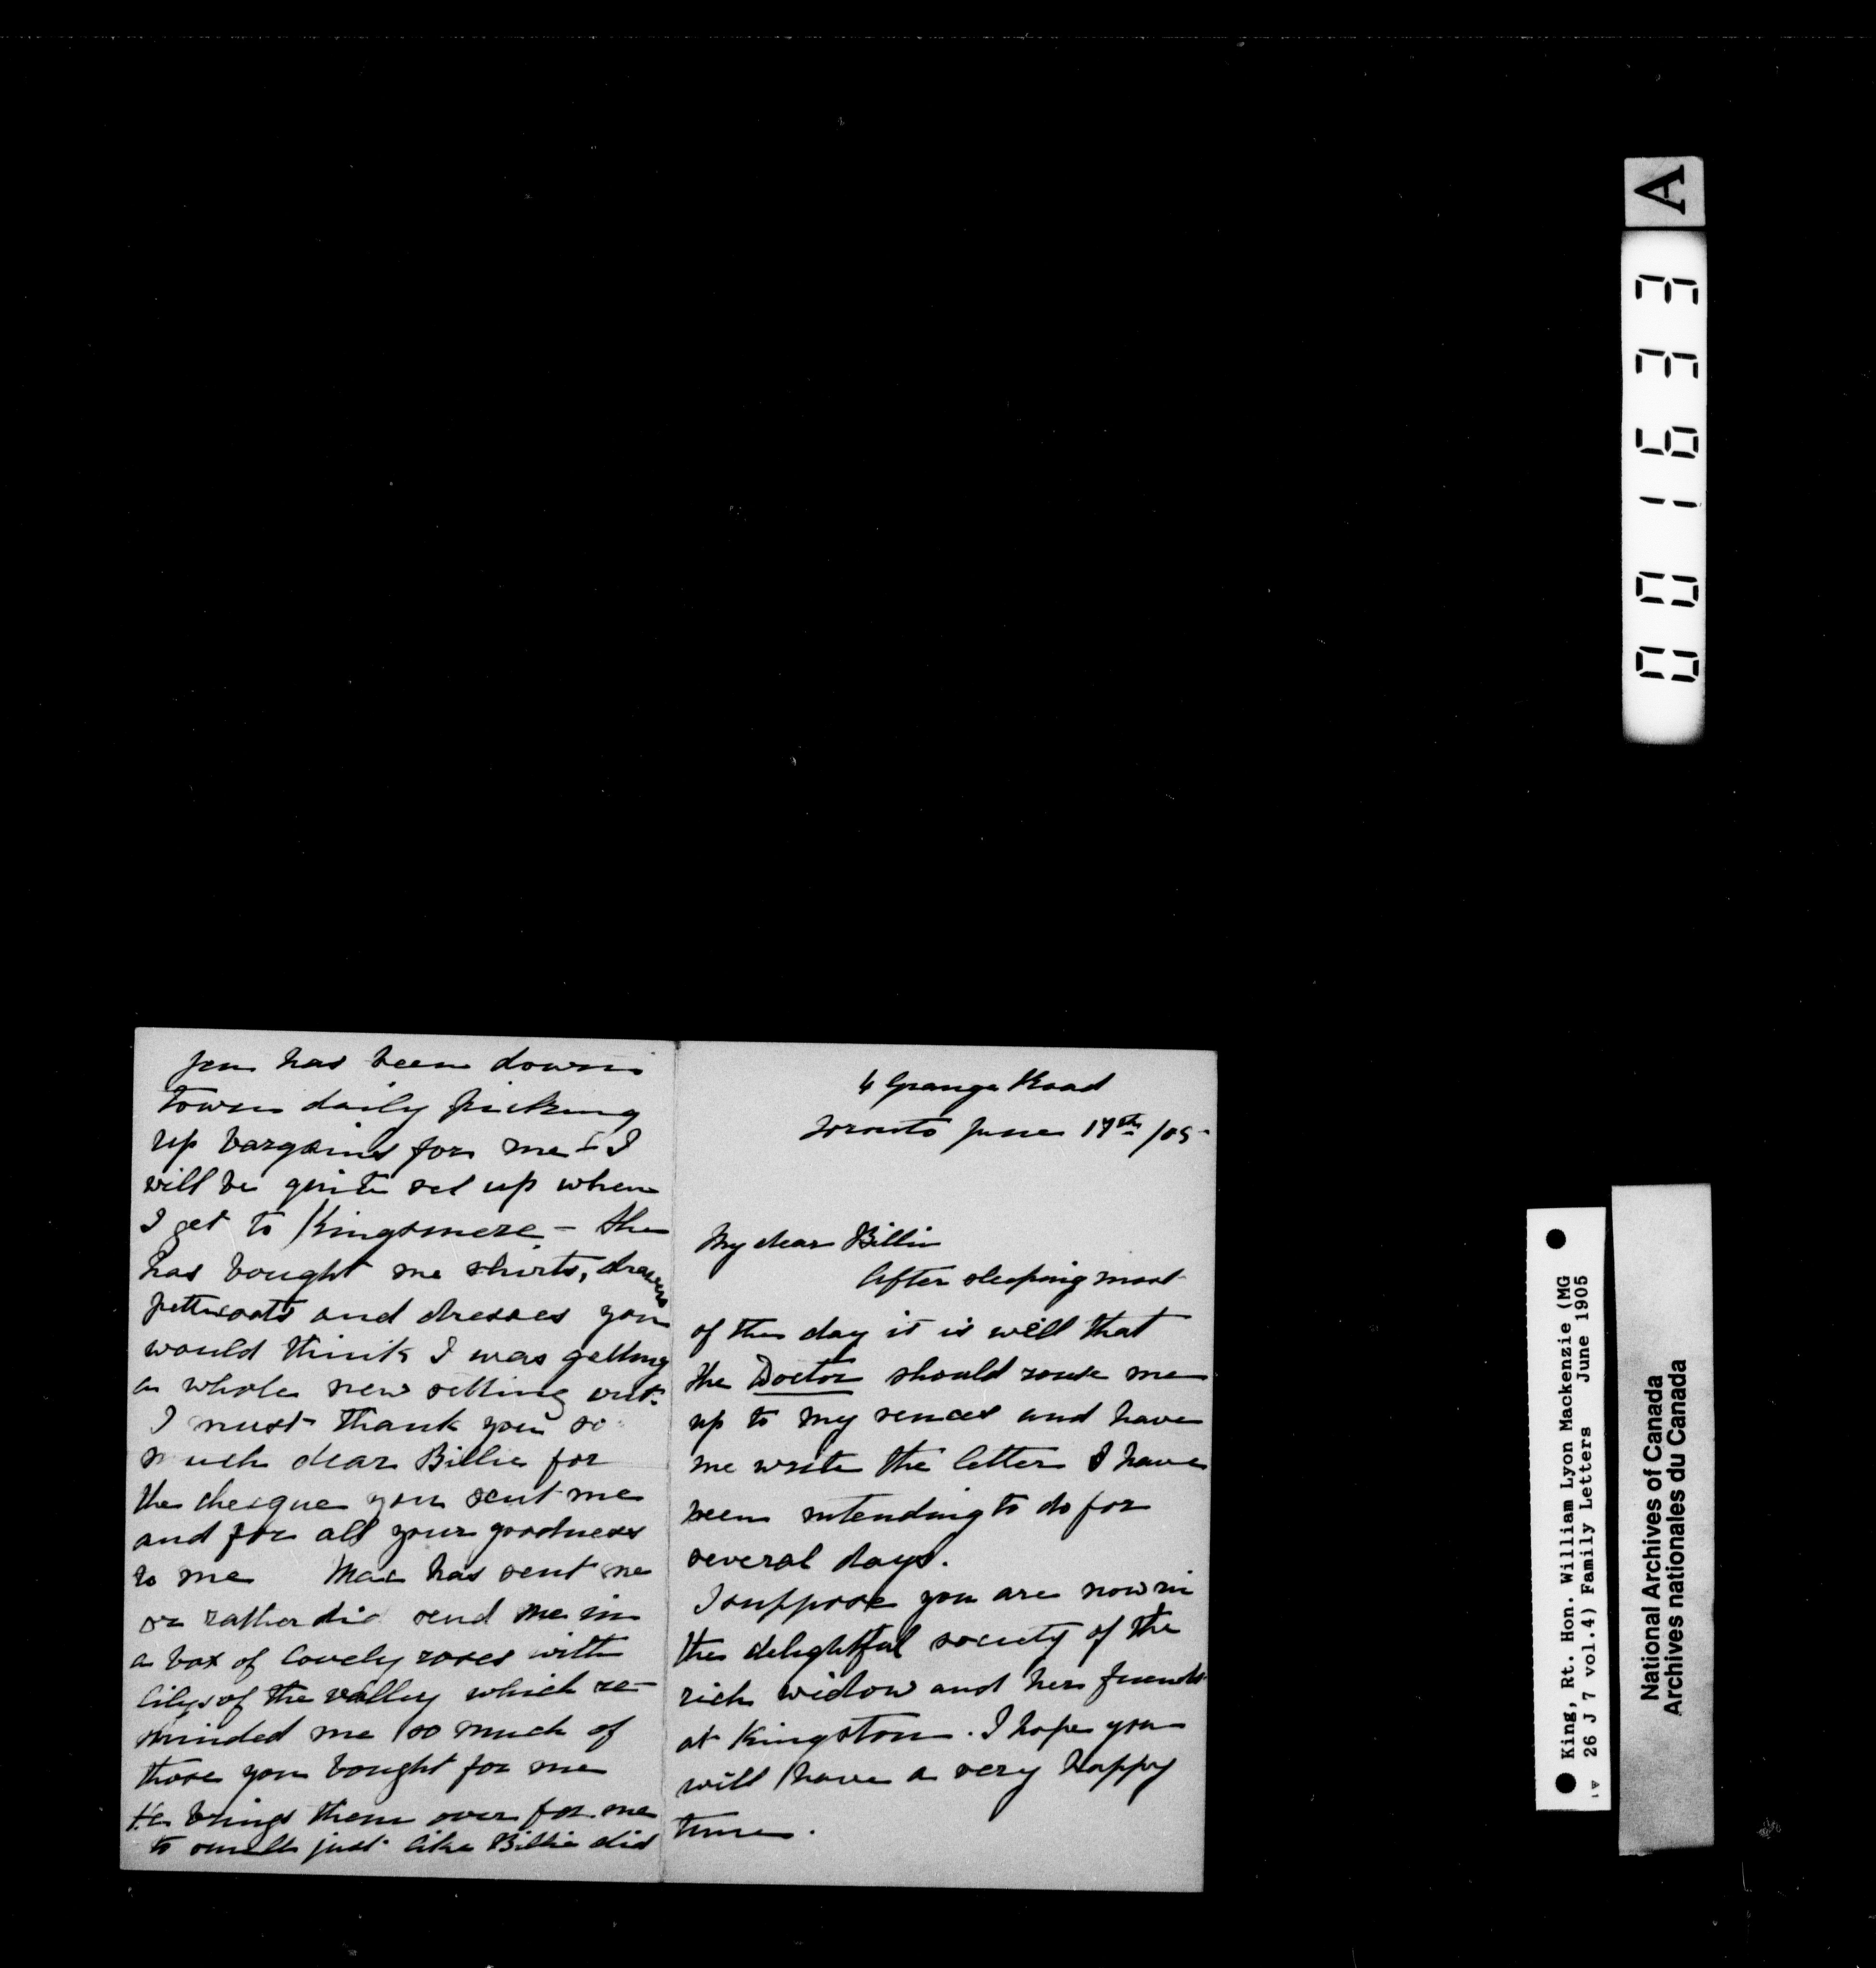 4 Grange Road
Toronto June 17th /05
My dear Billie
After sleeping most
of the day it is well that
the Doctor should rouse me
up to my sences and have
me write the letter I have
been intending to do for
several days.
I suppose you are now in
the delightful society of the
rich widow and her friends
at Kingston. I hope you
will have a very happy
time.
Jen has been down
town daily picking
up bargains for me - I
will be quite set up when
I get to Kingsmere - She
has bought me shirts, drawers
petticoats and dresses you
would think I was getting
a whole new setting out.
I must thank you so
much dear Billie for
the cheque you sent me
and for all your goodness
to me Mac has sent me
or rather did send me in
a box of lovely roses with
lilys of the valley which re-
minded me so much of
those you bought for me
He brings them over for me
to smell just like Billie did
A
001633
King, Rt. Hon. William Lyon Mackenzie (MG
26 J 7 vol.4) Family Letters June 1905
National Archives of Canada
Archives nationales du Canada